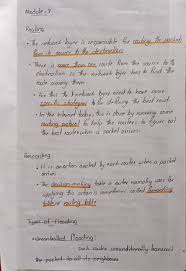 Module - 3
Routing
• The network layer is responsible for routing the packets
from its source to the destination
• There is more than one route from the source to the
destination so the network layer has to find the
route among them
• For this the network layer need to have some
specific strategies to for defining the best route
• In the internet today, this is done by running some
routing protocol to help the routers to figure out
the best routes when a packet arrives.
Forwarding
• It is an action applied by each router when a packet
arrives
• The decision-making table a router normally uses for
applying this action is sometimes called forwarding
table or routing table
Types of Flooding
• uncontrolled flooding:
each router unconditionally transmits
the packet to all its neighbours